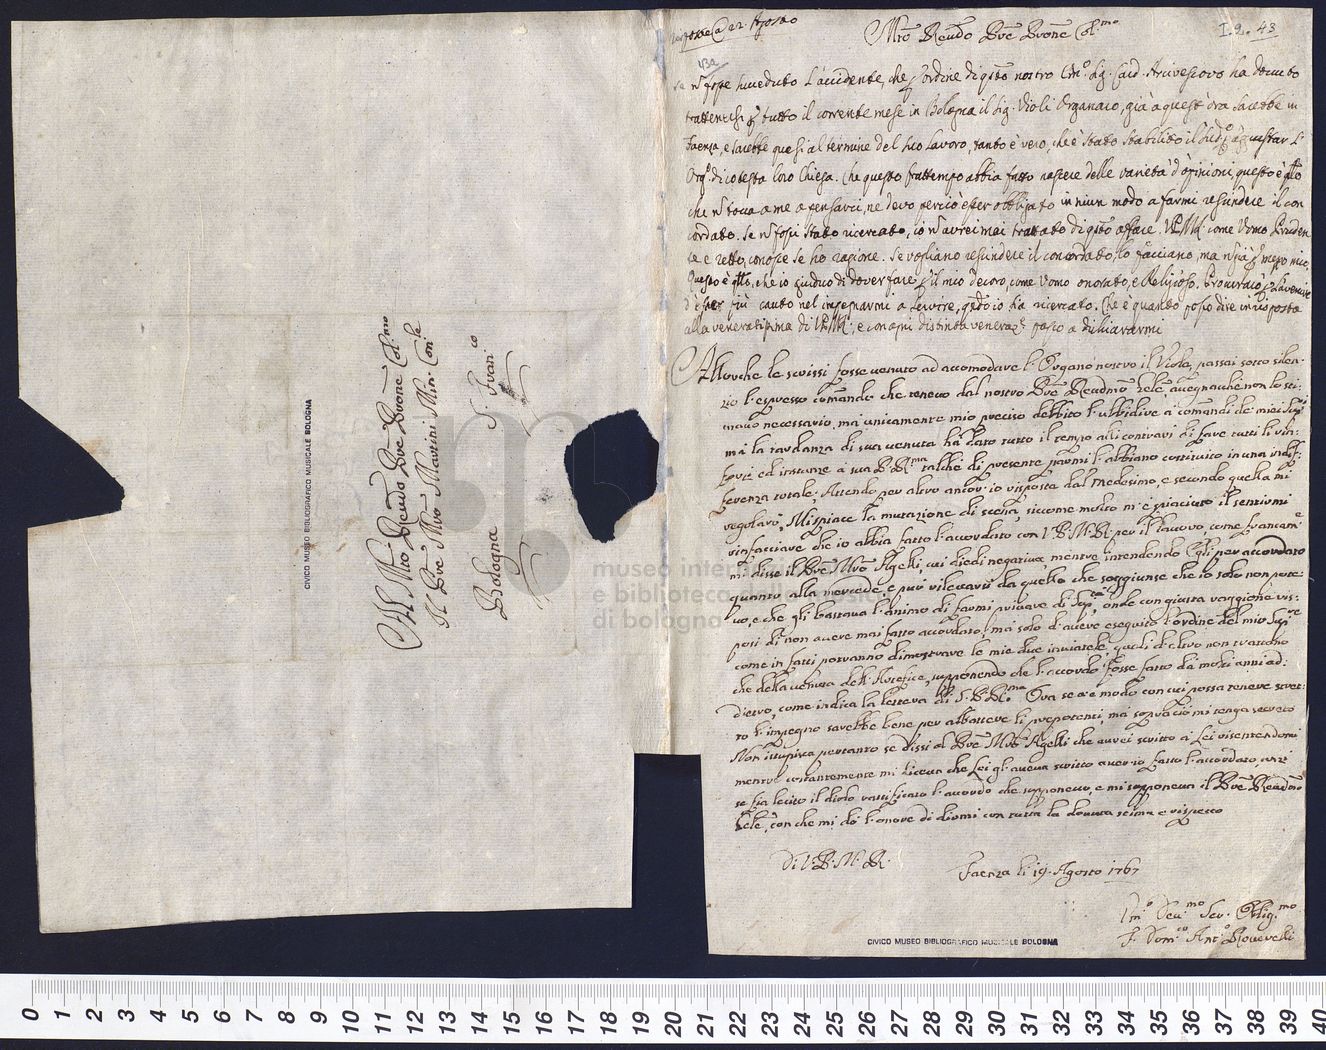 Al Mto Rendo Pre Prone Col.mo
Il Pre Mro Martini Min: Con:le
S. Fran:co
Bologna
CIVICO MUSEO BIBLIOGRAFICO MUSICALE BOLOGNA
museo internazionale
e biblioteca della musica
di bologna
22. Agosto
Mto Rendo Pre Prone Col.mo
I.9. 43
se nõ fosse succeduto l'accidente, che p ordine di qsto nostro Emo Sig. Card. Arcivescovo ha dovuto
trattenersi p tutto il corrente mese in Bologna il Sig. Violi Organaro, già a quest'ora sarebbe in
Faenza, e sarebbe quasi al termine del suo lavoro, tanto è vero, che è stato stabilito il
Orgo di cotesta loro Chiesa. Che questo frattempo abbia fatto nascere delle varietà d'opinioni, questo è qllo
che nõ tocca a me a pensarci, ne devo perciò esser obbligato in niun modo a farmi rescindere il con
cordato. Se nõ fossi stato ricercato, io nõ avrei mai trattato di qsto affare. VPMR come Uomo Pruden
te e retto, conosce se ho ragione. Se vogliano rescindere il concordato, lo facciano, ma nõ già p mezzo mio.
Questo è qllo, che io giudico di dover fare p il mio decoro, come Uomo onorato, e Religioso. Procurarò p l'avenire
d'esser più cauto nel impegnarmi a servire, qdo io sia ricercato. Che è quanto posso dire in risposta
alla veneratissima di VPMR, e con ogni distinta veneraze passo a dichiararmi
Allorche le scrissi fosse venuto ad accomodare l'Organo nostro il Viola, passai sotto silen:
zio l'espresso comando che tenevo dal nostro Pre Rendmo Tele, avegnache non lo sti:
mavo necessario, ma unicamente mio preciso debbito l'ubbidire a comandi de miei Supri
ma la tardanza di sua venuta ha dato tutto il tempo alli contrari di fare tutti li rin:
forzi ed instanze a sua P. Rma talche di presente parmi l'abbiano costituito in una indif:
ferenza totale. Attendo per altro ancor io risposta dal medesimo, e secondo quella mi
regolarò. Mi spiace la mutazione di scena, siccome molto m'è spiaciuto il sentirmi
rinfacciare che io abbia fatto l'accordato con V.P.M.R. per il lavoro come francame
mi disse il Pre Mro Agelli, cui diedi negativa, mentre intendendo Egli per accordato
quanto alla mercede, e può rilevarsi da quello che soggiunse che io solo non pote:
vo, e che gli bastava l'animo di farmi privare di Supa, onde con giusta raggione ris:
posi di non avere mai fatto accordato, ma solo d'avere eseguito l'ordine del mio Supre
come in fatti potranno dimostrare le mie due inviatele, quali d'altro non trattano
che della venuta dell'Artefice, supponendo che l'accordo fosse fatto da molti anni ad:
dietro, come indica la lettera di S.P.Rma. Ora se a è modo con cui possa tenere stret:
to l'impegno sarebbe bene per abbattere li prepotenti, ma sopraciò mi tenga secreto
Non istupisca pertanto se dissi al Pre Mro Agelli che avrei scritto a Lei risentendomi
mentre costantemente mi diceva che Lei gl'aveva scritto aver io fatto l'accordato,
se sia lecito il dirlo ratificato l'accordo che supponevo, e mi supponeva il Pre Rendmo
Tele, con che mi dò l'onore di dirmi con tutta la dovuta stima e rispetto
Di V.P.M.R.
Faenza li 19. Agosto 1767
Umo Devmo Ser. Obligmo
F. Domco Anto Roverelli
CIVICO MUSEO BIBLIOGRAFICO MUSICALE BOLOGNA
0 1 2 3 4 5 6 7 8 9 10 11 12 13 14 15 16 17 18 19 20 21 22 23 24 25 26 27 28 29 30 31 32 33 34 35 36 37 38 39 40